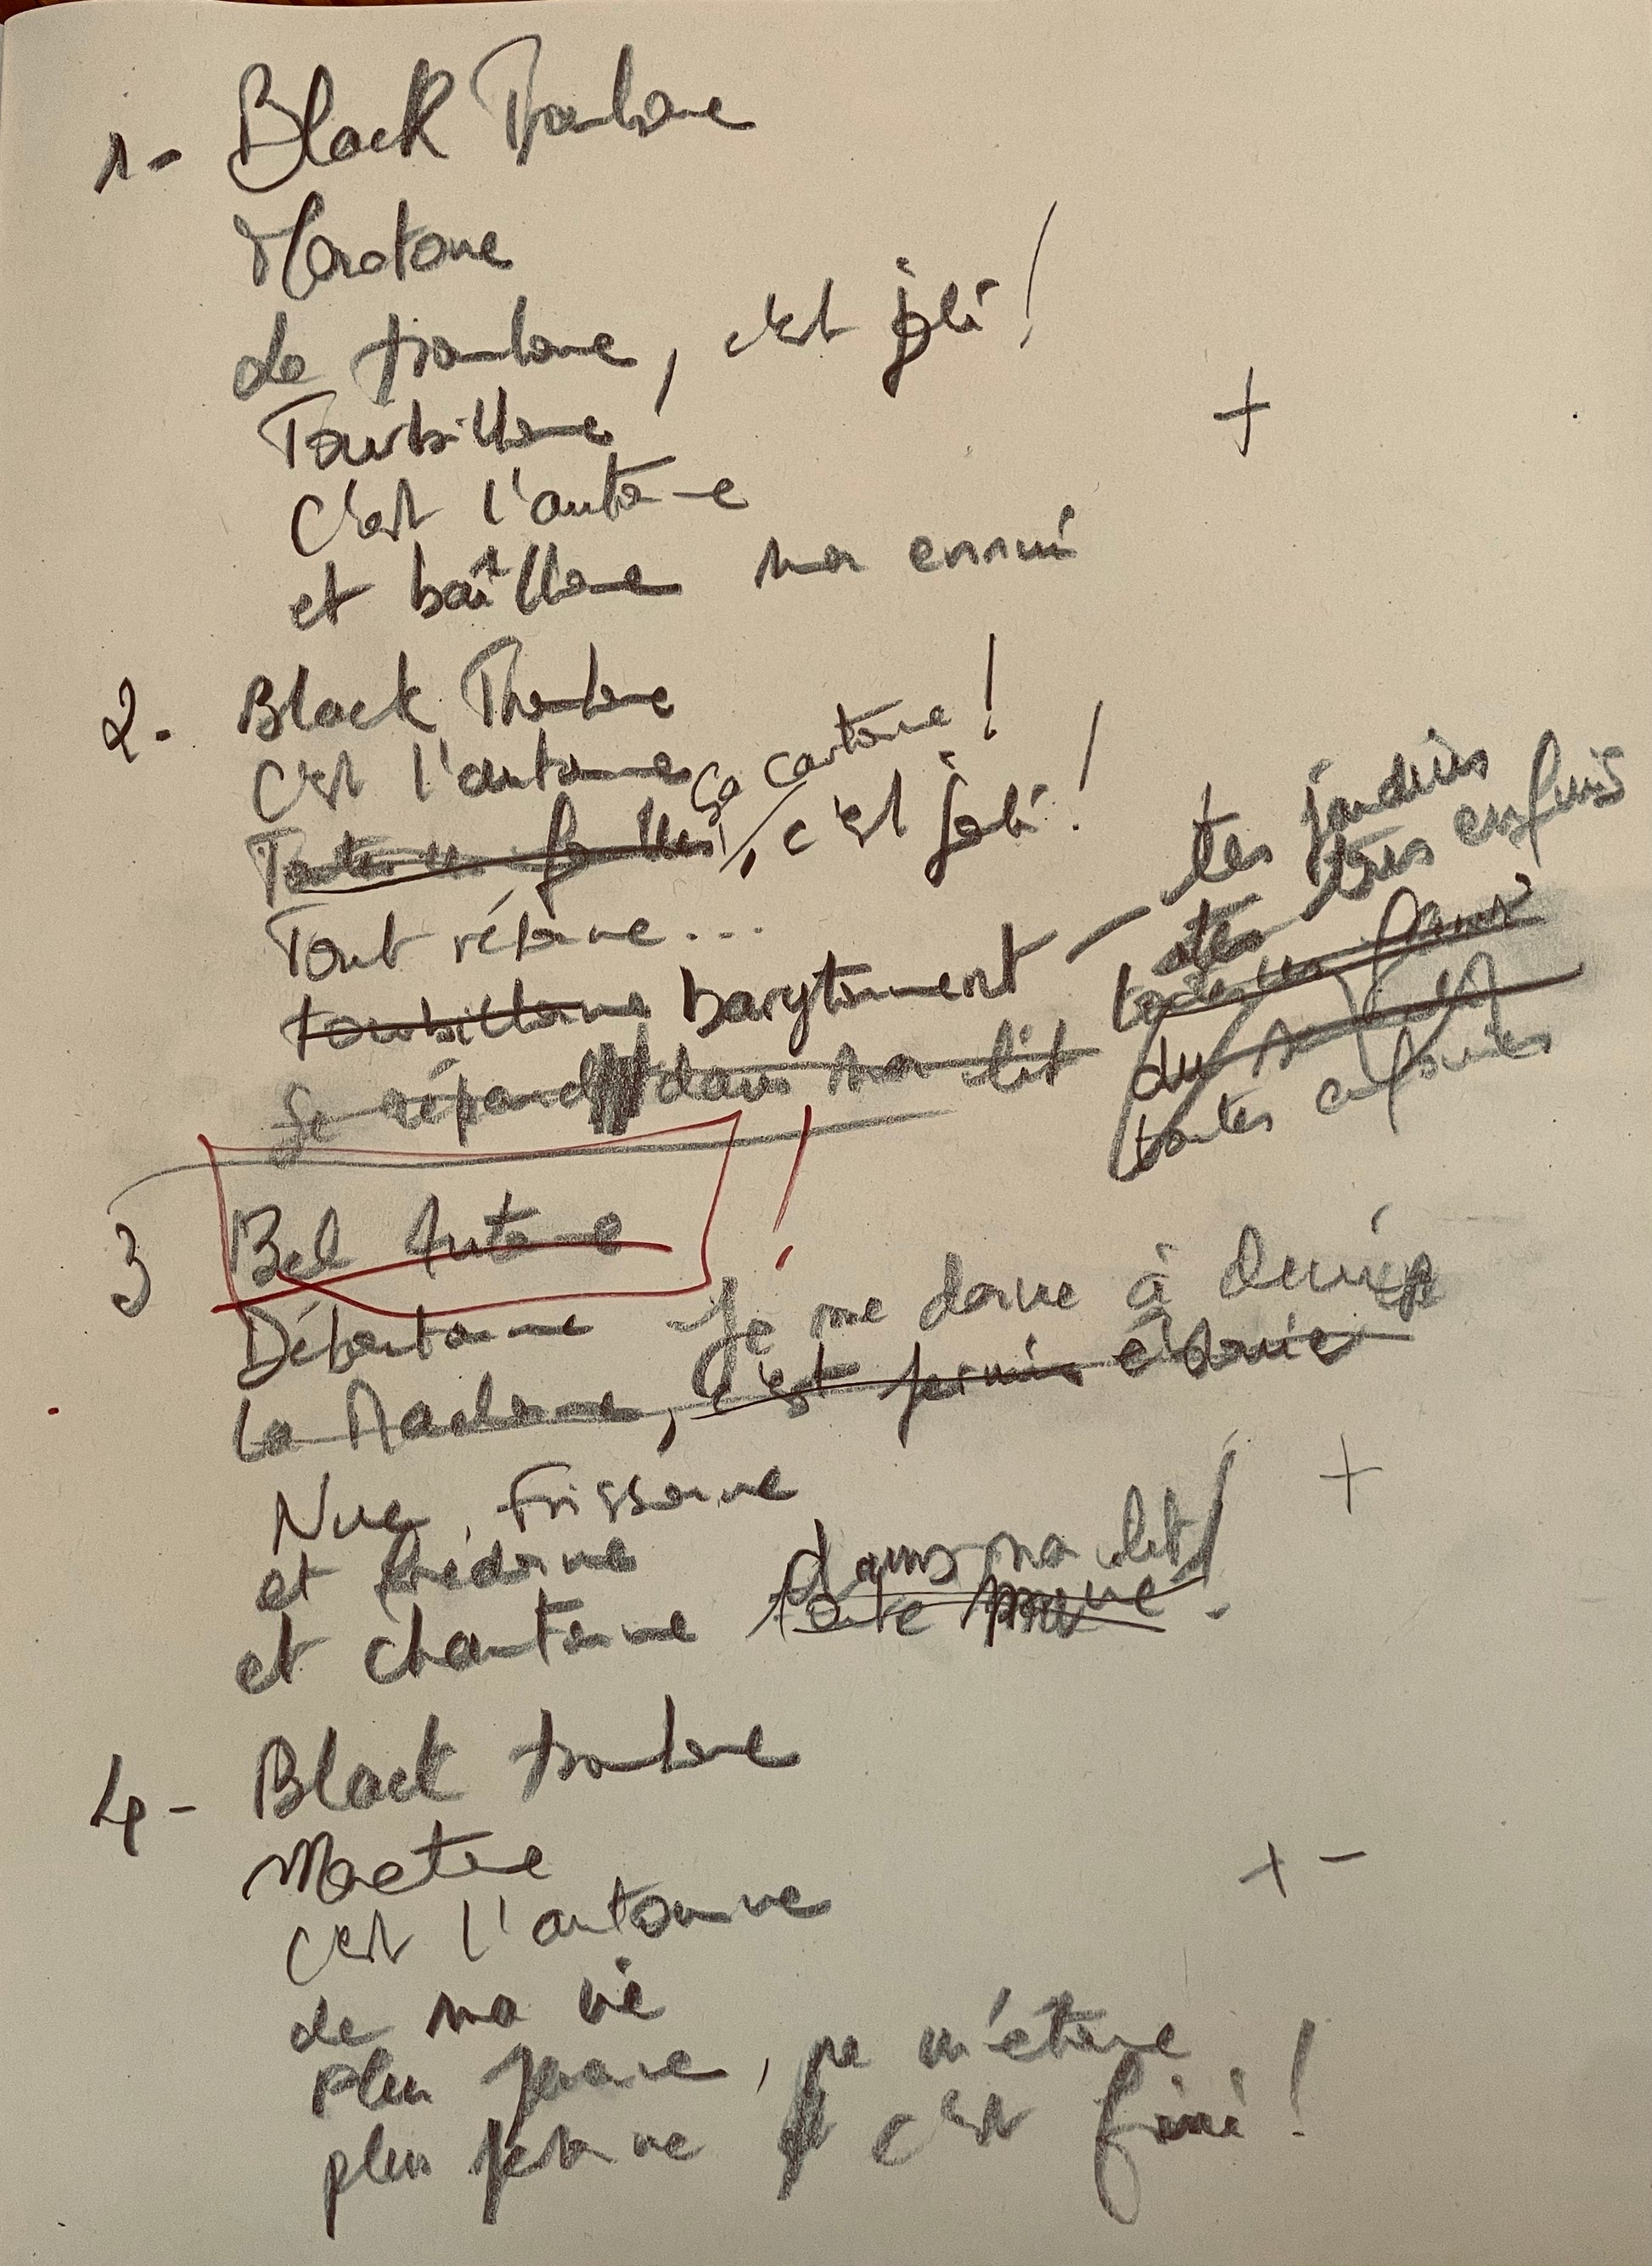 1- Black Trombone
Monotone
de trombone, c'est joli !
Tourbillonne
+
C'est l'automne
et baîllonne mon ennui
2. Black Trombone
C'est l'automne ça cartonne !
Toutes les feuilles, c'est joli !
Tout rétonne...
tourbillonne barytonnent - tes jardins
tes très enfuis
du
toutes enfouies
Se répand dans mon lit
3 Bel Automne !
Déboutonne Je me donne à demie
la Madone, c'est permis
Nue, frissonne
+
et fredonne dans mon lit !
et chantonne toute
4- Black trombone
+ -
c'est l'automne
de ma vie
Plus personne, ne m'étonne
plus personne c'est fini !